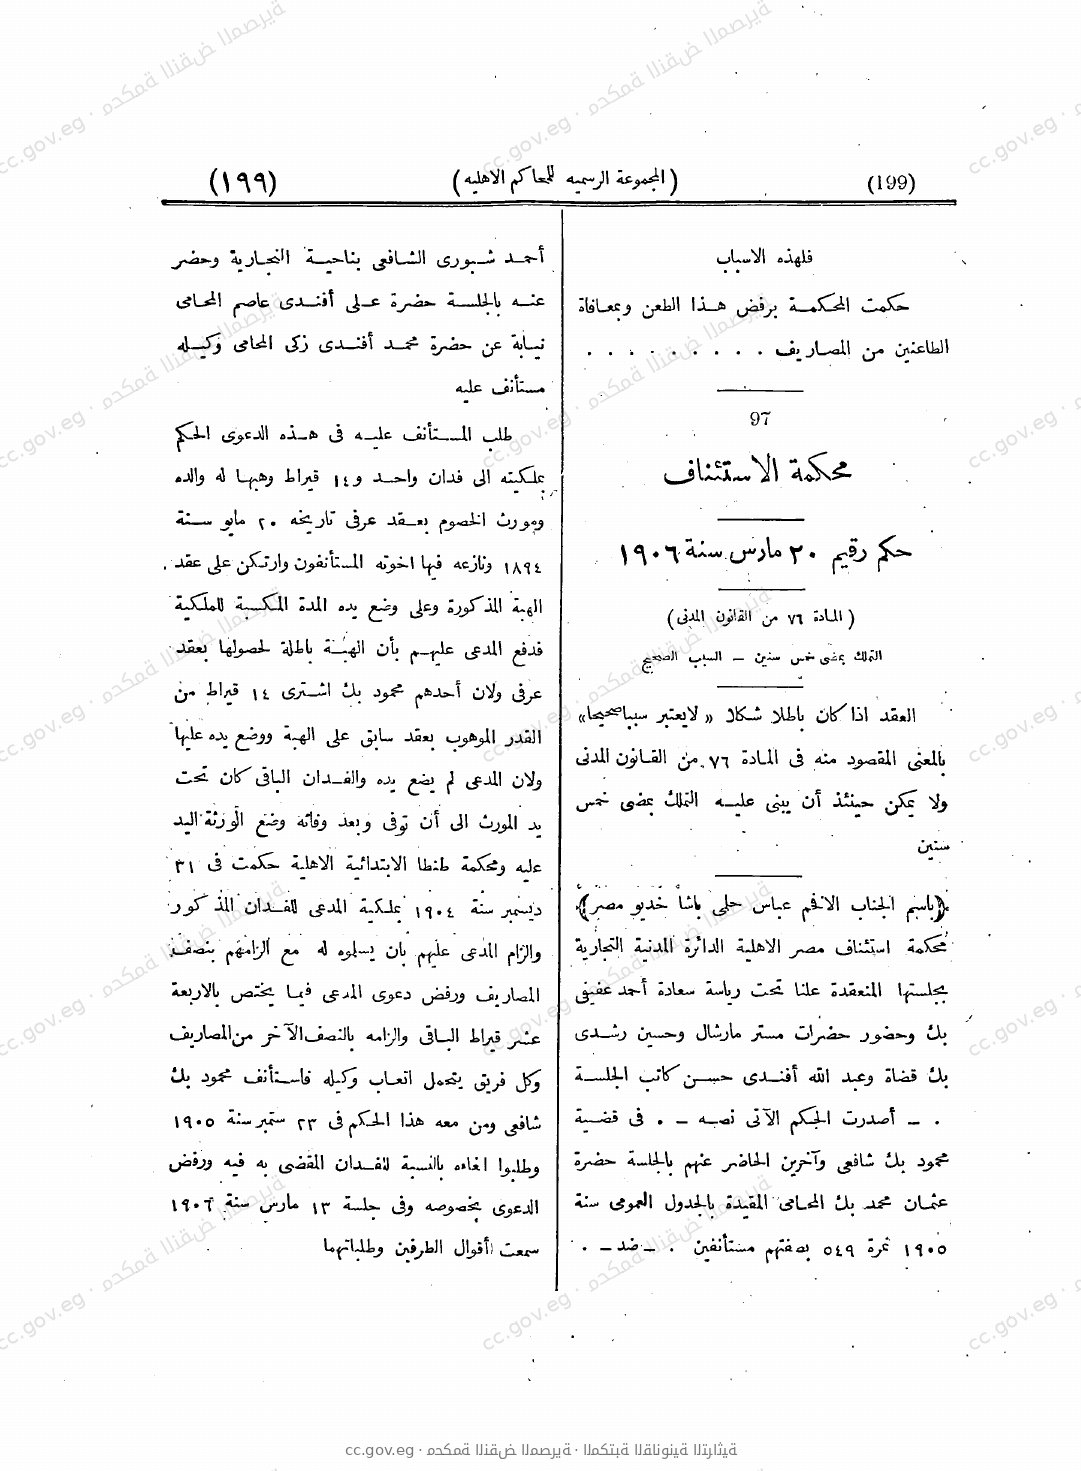 (199)
(المجموعة الرسميه للمحاكم الاهليه)
(١٩٩)
فلهذه الاسباب
حكمت المحكمة برفض هذا الطعن وبمعافاة
الطاعنين من المصاريف . . . . . . . . .
97
محكمة الاستئناف
حكم رقيم ٢٠ مارس سنة ١٩٠٦
(المادة ٧٦ من القانون المدنى)
التملك بمضى خمس سنين – السبب الصحيح
العقد اذا كان باطلا شكلا « لايعتبر سببا صحيحا»
بالمعنى المقصود منه فى المادة ٧٦ من القانون المدنى
ولا يمكن حينئذ أن يبنى عليه التملك بمضى خمس
سنين
﴿باسم الجناب الافخم عباس حلمى باشا خديو مصر﴾
محكمة استئناف مصر الاهلية الدائرة المدنية التجارية
بجلستها المنعقدة علنا تحت رياسة سعادة أحمد عفيفى
بك وحضور حضرات مستر مارشال وحسين رشدى
بك قضاة وعبد الله أفندى حسن كاتب الجلسة
. – أصدرت الحكم الآتى نصه – . فى قضية
محمود بك شافعى وآخرين الحاضر عنهم بالجلسة حضرة
عثمان محمد بك المحامى المقيدة بالجدول العمومى سنة
١٩٠٥ نمرة ٥٤٩ بصفتهم مستأنفين . – ضد – .
أحمد شبورى الشافعى بناحية النجارية وحضر
عنه بالجلسة حضرة على أفندى عاصم المحامى
نيابة عن حضرة محمد أفندى زكى المحامى وكيله
مستأنف عليه
طلب المستأنف عليه فى هذه الدعوى الحكم
بملكيته الى فدان واحد و١٤ قيراط وهبها له والده
ومورث الخصوم بعقد عرفى تاريخه ٢٠ مايو سنة
١٨٩٤ ونازعه فيها اخوته المستأنفون وارتكن على عقد
الهبة المذكورة وعلى وضع يده المدة المكسبة للملكية
فدفع المدعى عليهم بأن الهبة باطلة لحصولها بعقد
عرفى ولان أحدهم محمود بك اشترى ١٤ قيراط من
القدر الموهوب بعقد سابق على الهبة ووضع يده عليها
ولان المدعى لم يضع يده والفدان الباقى كان تحت
يد المورث الى أن توفى وبعد وفاته وضع الورثة اليد
عليه ومحكمة طنطا الابتدائية الاهلية حكمت فى ٣١
ديسمبر سنة ١٩٠٤ بملكية المدعى للفدان المذكور
والزام المدعى عليهم بان يسلموه له مع الزامهم بنصف
المصاريف ورفض دعوى المدعى فيما يختص بالاربعة
عشر قيراط الباقى والزامه بالنصف الآخر من المصاريف
وكل فريق يتحمل اتعاب وكيله فاستأنف محمود بك
شافعى ومن معه هذا الحكم فى ٢٣ ستمبر سنة ١٩٠٥
وطلبوا الغاءه بالنسبة للفدان المقضى به فيه ورفض
الدعوى بخصوصه وفى جلسة ١٣ مارس سنة ١٩٠٦
سمعت أقوال الطرفين وطلباتهما
cc.gov.eg · محكمة النقض المصرية · المكتبة القانونية التراثية